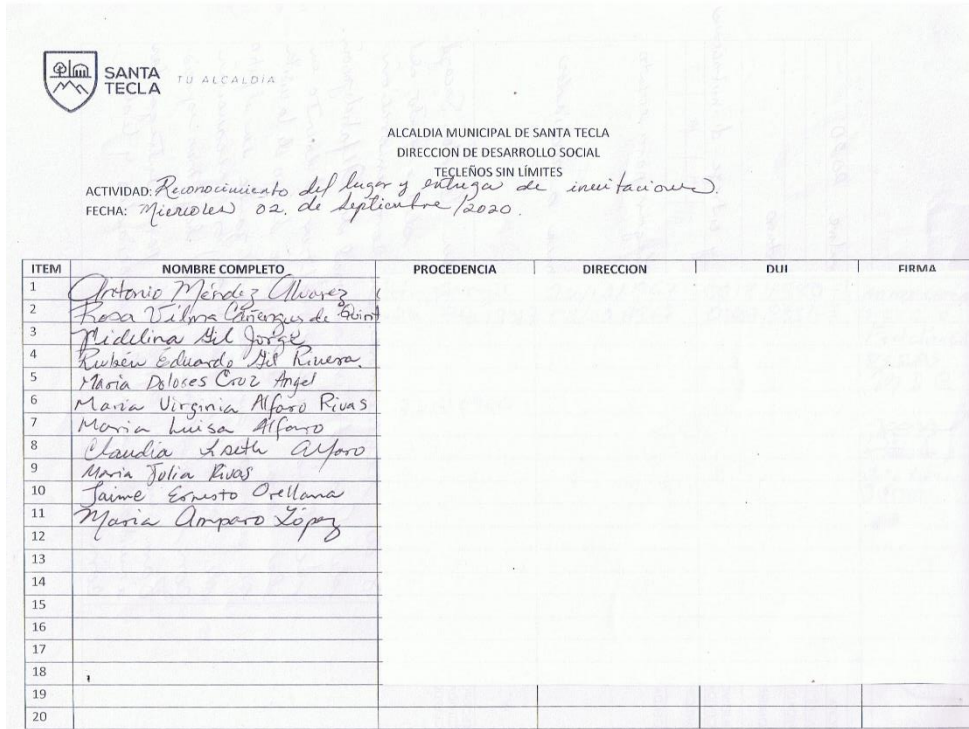 SANTA
TECLA
TU ALCALDIA
ALCALDIA MUNICIPAL DE SANTA TECLA
DIRECCION DE DESARROLLO SOCIAL
TECLEÑOS SIN LÍMITES
ACTIVIDAD: Reconocimiento del lugar y entrega de invitaciones.
FECHA: Miercoles 02. de Septiembre /2020.
ITEM NOMBRE COMPLETO PROCEDENCIA DIRECCION DUI FIRMA
1 Antonio Méndez Alvarez
2 Rosa Vilma de
3 Fidelina Gil Jorge
4 Rubén Eduardo Gil Rivera.
5 Maria Dolores Cruz Angel
6 Maria Virginia Alfaro Rivas
7 Maria Luisa Alfaro
8 Claudia Lseth Alfaro
9 Maria Julia Rivas
10 Jaime Ernesto Orellana
11 Maria Amparo López
12
13
14
15
16
17
18
19
20